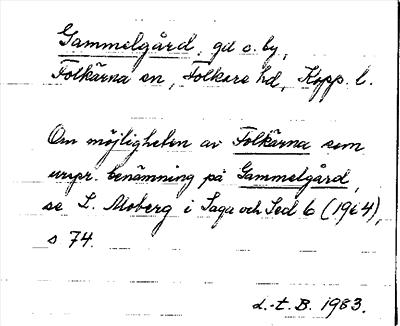 Gammelgård, gd o. by,
Folkärna sn, Folkare hd, Kopp. l.
Om möjligheten av Folkärna som
urspr. benämning på Gammelgård,
se L. Moberg i Saga och Sed 6 (1964),
s 74.
L.-t. B. 1983.